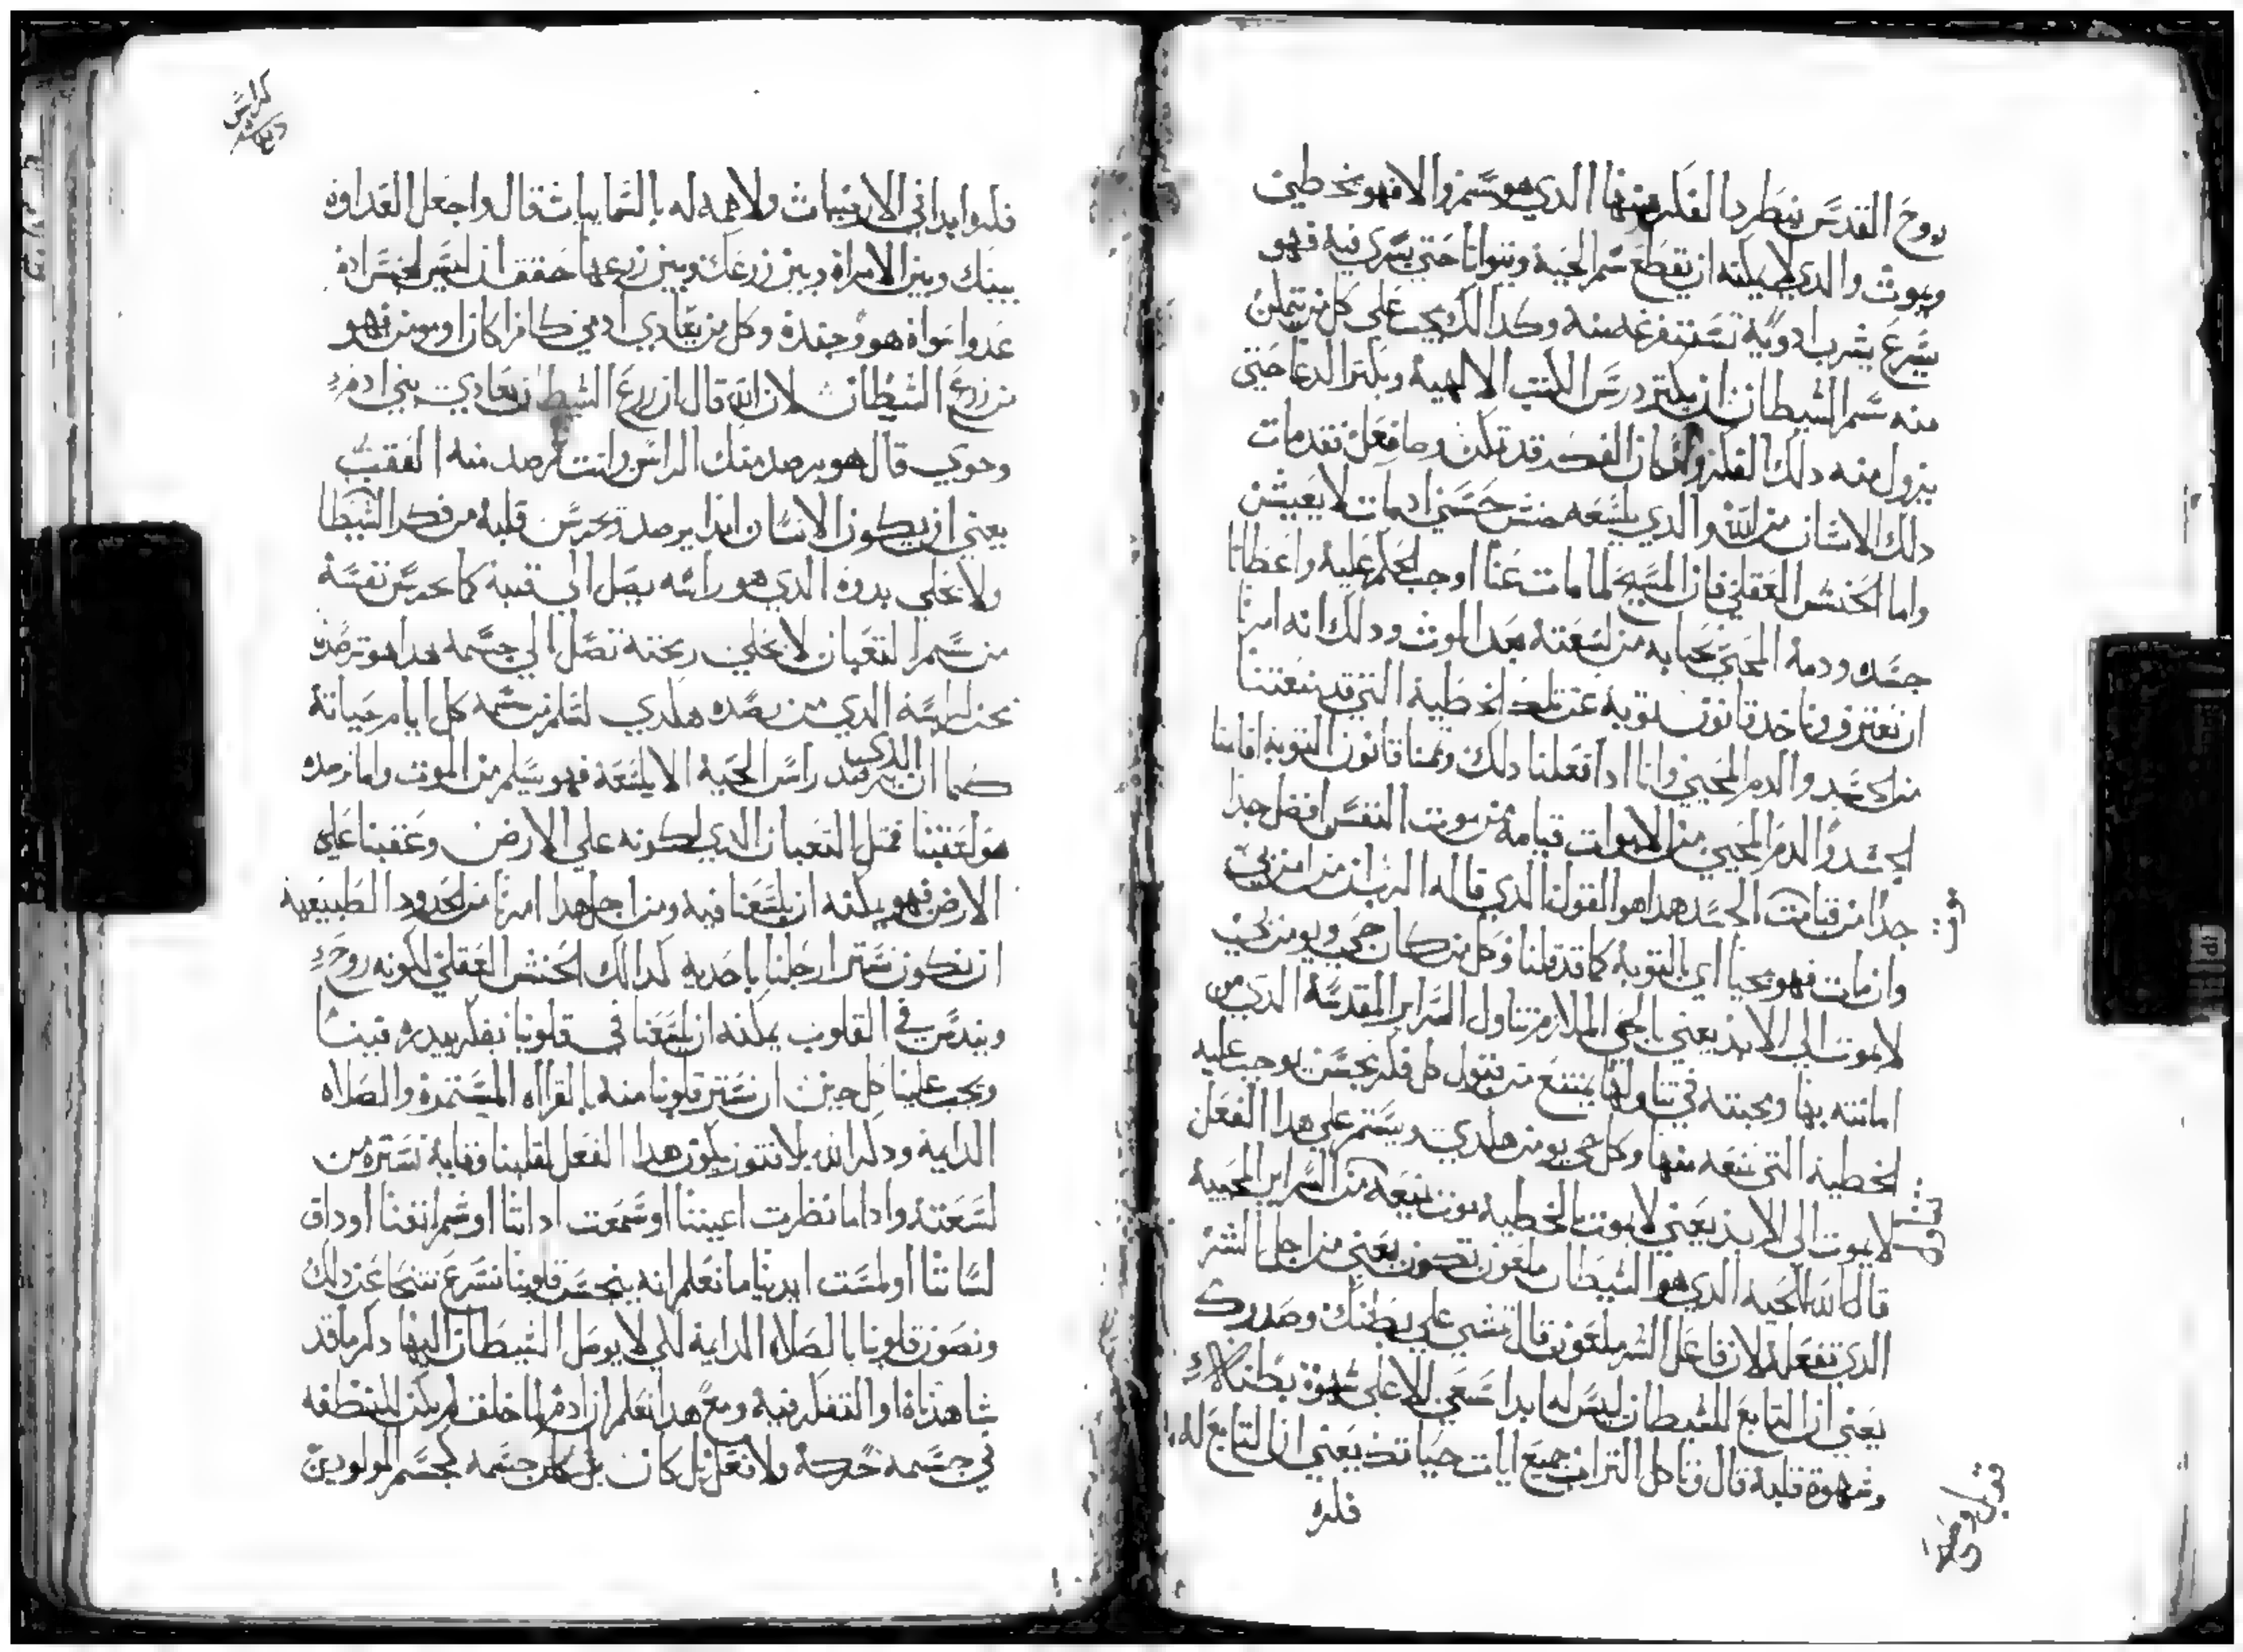 روح القدس ينطرد الفكر منها الدي هو سم والا فهو يخطي
ويموت والدي لا يمكنه ان يقطع سم الحية ويتوانا حتي يسري فيه فهو
يسرع يشرب ادوية تستفرغه منه وكدالك يجب علي كل من يتمكن
منه سم الشيطان ان يكتر درس الكتب الالهية ويكتر الدعا حتي
يزول منه دلك الفكر وان كان الفكر قد تمكن وصار فعل فقد مات
دلك الانسان من الله والدي يلسعه حنش حسي ادا مات لا يعيش
واما الحنش العقلي فان المسيح لما مات عنا اوجب الحكم عليه واعطانا
جسده ودمه المحيي يحيا به من لسعته بعد الموت ودلك انه امرنا
ان نعترف وناخد قانون توبة عن تلك الخطية التي قد منعتنا
من الجسد والدم المحيي وانا ادا فعلنا دلك وتممنا قانون التوبه اقامنا
الجسد والدم المحيي من الاموات قيامة من موت النفس افضل جدا
جدا من قيامة الجسد هدا هو القول الدي قاله الرب ان من امن بي
موت
وان مات فهو يحيا اي بالتوبة كما قد قلنا وكل من كان حي ويومن بي
لا يموت الي الابد يعني بالحي الملازم تناول السراير المقدسة الدي من
امانته بها ومحبته في تناولها يمتنع من قبول كل فكر نجس يوجب عليه
الخطية التي تمنعه منها وكل حي يومن هكدي ويستمر علي هدا الفعل
لا يموت الي الابد يعني لا يموت بالخطية موت يمنعه من السراير المحيية
تناول
قال الله للحية الدي هو الشيطان ملعون تكون يعني من اجل الشر
الدي تفعله لان فاعل الشر ملعون قال تمشي علي بطنك وصدرك
يعني ان التابع للشيطان ليس له ابدا سعي الا علي شهوة بطنه
وشهوة قلبه قال وتاكل التراب جميع ايات حياتك يعني ان التابع له
فكره
قوبل وصح
كراس
فكره ابدا في الارضيات ولا هم له بالسماييات قال واجعل العداوه
بينك وبين الامراة وبين زرعك وبين زرعها حقق ان ليس لحسراده
عدوا سواه هو وجنده وكل من يعادي ادمي كافرا كان او مومن فهو
من زرع الشيطان لان الله قال ان زرع الشيطان يعادي بني ادم
وحوي قال هو يرصد منك الراس وانت ترصد منه العقب
يعني ان يكون الانسان ابدا يرصد ويحرس قلبه من فكر الشيطا
ولا يخلي بدوه الدي هو راسه يصل الي قلبه كما يحرس نفسه
من سم التعبان لا يخلي ريحته تصل الي جسمه هدا هو ترصده
نحن لراسه الدي من رصده هكدي لسلم من سمه كل ايام حياته
كما ان الدي يرصد راس الحية الا يلسعه فهو يسلم من الموت واما رصده
هو لعقبنا فمتل التعبان الدي لكونه علي الارض وعقبنا علي
الارض فهو يمكنه ان يلسعنا فيه ومن اجل هدا امرنا من الحدود الطبيعية
ان نكون نستر ارجلنا باحدية كدالك الحنش العقلي لكونه روح
ويندس في القلوب يمكنه ان يلسعنا في قلوبنا بفكر يبدره فينا
ويجب علينا كل حين ان نستر قلوبنا منه بالقراه المستمرة والصلاه
الدايمة ودكر الله بلا فتور يكون هدا الفعل لقلبنا وقاية تستره من
لسعته وادا ما نظرت اعيننا او سمعت اداننا او شم انفنا او داق
لساننا او لمست ايدينا ما نعلم انه ينجس قلوبنا نسرع نتنحا عن دلك
ونصون قلوبنا بالصلاه الدايمة لكي لا يوصل الشيطان اليها دكر ما قد
شاهدناه او التفكر فيه ومع هدا نعلم ان ادم لما خلف لم يكن للمنطقه
في جسمه حركة ولا فعل بل كان جسمه كجسم المولودين